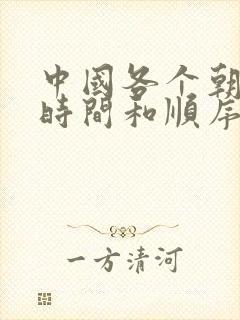 中國各个朝
時間和順序
一方清河